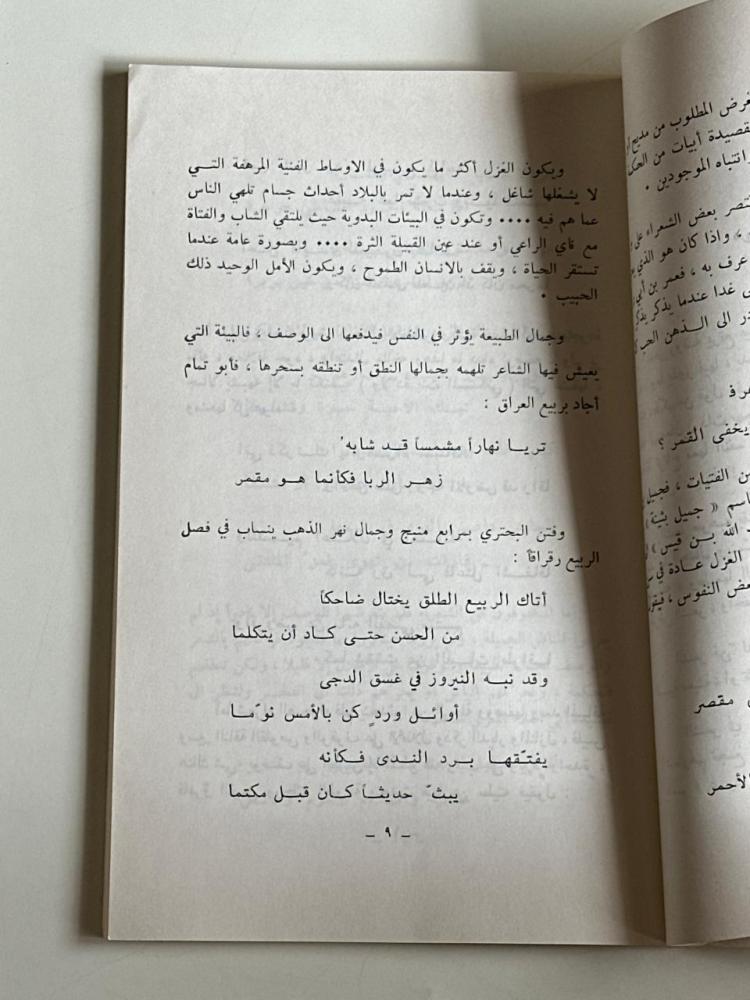 ويكون الغزل أكثر ما يكون في الاوساط الفنية المرهفة التــي
لا يشغلها شاغل ، وعندما لا تمر بالبلاد أحداث جسام تلهي الناس
عما هم فيه •••• وتكون في البيئات البدوية حيث يلتقي الشاب والفتاة
مع ناي الراعي أو عند عين القبيلة الثرة •••• وبصورة عامة عندما
تستقر الحياة ، ويقف بالانسان الطموح ، ويكون الأمل الوحيد ذلك
الحبيب •
وجمال الطبيعة يؤثر في النفس فيدفعها الى الوصف ، فالبيئة التي
يعيش فيها الشاعر تلهمه بجمالها النطق أو تنطقه بسحرها ، فأبو تمام
أجاد بربيع العراق :
تريــا نهاراً مشمساً قــد شابه'
زهــر الربــا فكأنما هــو مقمر
وفتن البحتري بمرابع منبج وجمال نهر الذهب ينساب في فصل
الربيع رقراقاً :
أتاك الربيع الطلق يختال ضاحكاً
من الحسن حتــى كــاد أن يتكلما
وقد نبه النيروز في غسق الدجى
أوائــل وردٍ كن بالأمس نوّمــا
يفتّقهــا بــرد النــدى فكــأنه
يبثّ حديثــاً كــان قبل مكتما
– ٩ –
غرض المطلوب من مديح
قصيدة أبيات من الحك
انتباه الموجودين •
تصر بعض الشعراء على
، واذا كان هو الذي
عرف به ، فعمر بن أبي
غدا عندما يذكر
ر الى الــذهن الحب
يخفى القمر ؟
ن الفتيات ، فجميل
اسم « جميل بثينة »
الله بــن قيس »
الغزل عــادة في
عض النفوس ، فيقو
مقصر
لأحمر